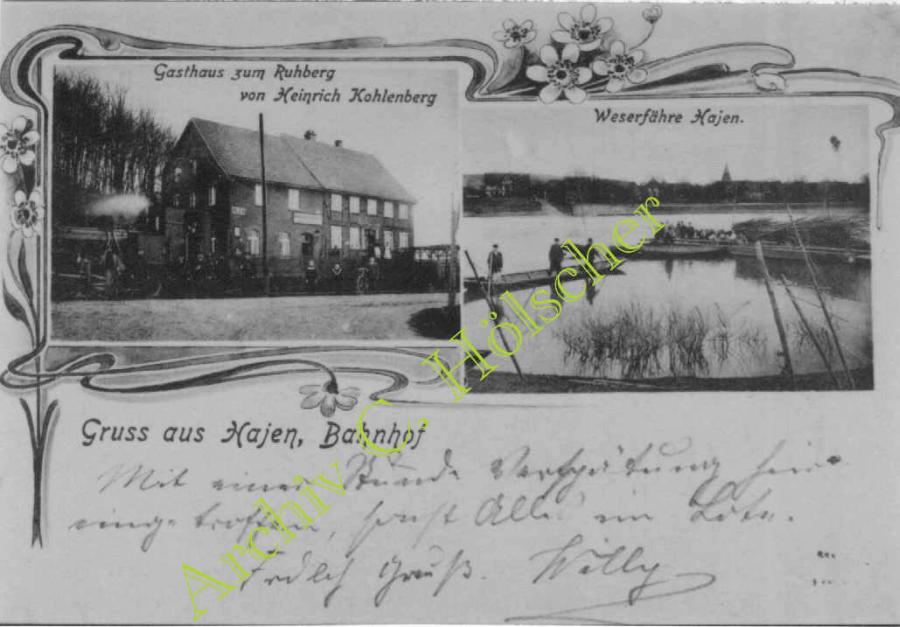 Gasthaus zum Ruhberg
von Heinrich Kohlenberg
Weserfähre Hajen.
Gruss aus Hajen, Bahnhof
Mit einer Stunde Verspätung hier
eingetroffen, sonst Alles im Lote.
Frdlch Gruß. Willy
Archiv C. Hölscher